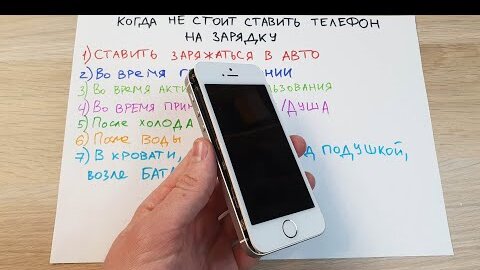 КОГДА НЕ СТОИТ СТАВИТЬ ТЕЛЕФОН
НА ЗАРЯДКУ
1) СТАВИТЬ ЗАРЯЖАТЬСЯ В АВТО
2) ВО ВРЕМЯ
3) ВО ВРЕМЯ
4) ВО ВРЕМЯ /ДУША
5) ПОСЛЕ ХОЛОДА
6) ПОСЛЕ ВОДЫ
7) В КРОВАТИ, ПОДУШКОЙ,
ВОЗЛЕ